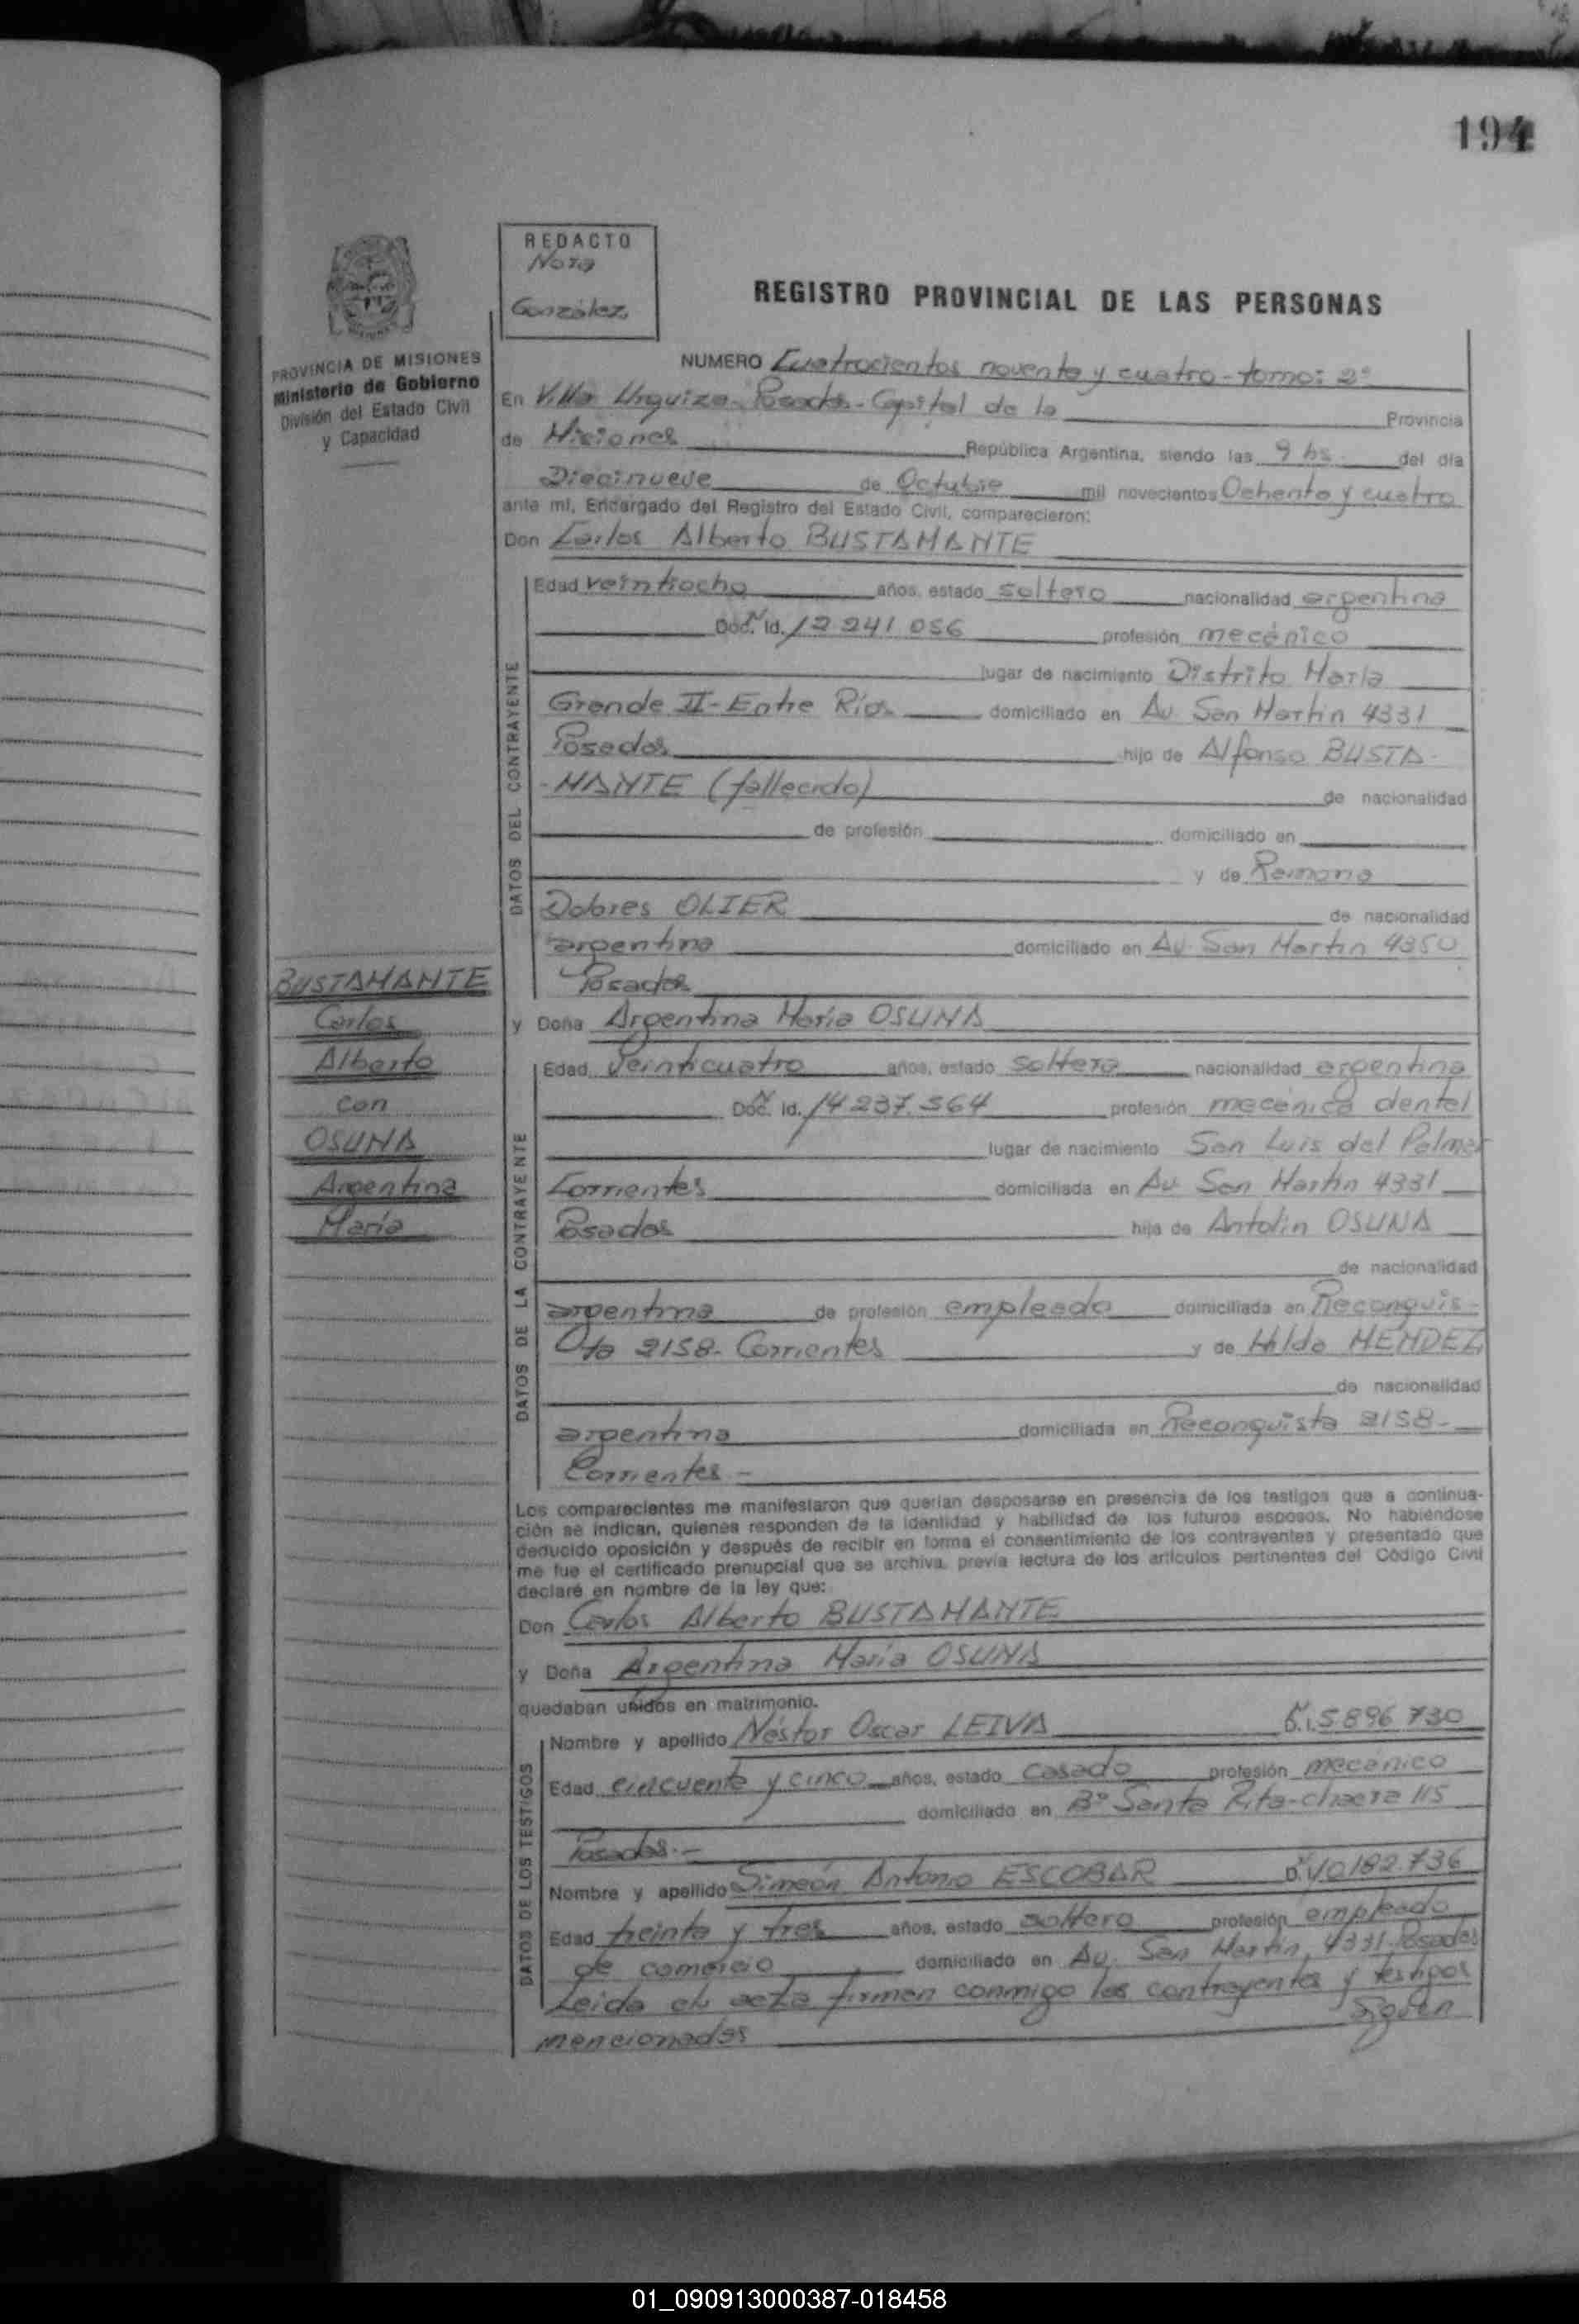 194
REDACTO
Nora
González
REGISTRO PROVINCIAL DE LAS PERSONAS
PROVINCIA DE MISIONES
Ministerio de Gobierno
División del Estado Civil
y Capacidad
NUMERO Cuatrocientos noventa y cuatro - tomo: 2º
En Villa Urquiza - Posadas - Capital de la Provincia
de Misiones República Argentina, siendo las 9 hs. del día
Diecinueve de Octubre mil novecientos Ochenta y cuatro
ante mí, Encargado del Registro del Estado Civil, comparecieron:
Don Carlos Alberto BUSTAMANTE
DATOS DEL CONTRAYENTE
Edad veintiocho años, estado soltero nacionalidad argentina
Doc. Id. 12 241 056 profesión mecánico
lugar de nacimiento Distrito María
Grande II - Entre Ríos domiciliado en Av. San Martín 4331
Posadas hijo de Alfonso BUSTA-
-MANTE (fallecido) de nacionalidad
de profesión domiciliado en
y de Ramona
Dolores OLIER de nacionalidad
argentina domiciliado en Av. San Martín 4350
Posadas
BUSTAMANTE
Carlos
Alberto
con
OSUNA
Argentina
María
y Doña Argentina María OSUNA
DATOS DE LA CONTRAYENTE
Edad Veinticuatro años, estado soltera nacionalidad argentina
Doc. Id. 14 237 564 profesión mecánica dental
lugar de nacimiento San Luis del Palmar
Corrientes domiciliada en Av. San Martín 4331
Posadas hija de Antolín OSUNA
de nacionalidad
argentina de profesión empleado domiciliada en Reconquis-
ta 2158 - Corrientes y de Hilda MENDEZ
de nacionalidad
argentina domiciliada en Reconquista 2158 -
Corrientes -
Los comparecientes me manifestaron que querían desposarse en presencia de los testigos que a continua-
ción se indican, quienes responden de la identidad y habilidad de los futuros esposos. No habiéndose
deducido oposición y después de recibir en forma el consentimiento de los contrayentes y presentado que
me fue el certificado prenupcial que se archiva, previa lectura de los artículos pertinentes del Código Civil
declaré en nombre de la ley que:
Don Carlos Alberto BUSTAMANTE
y Doña Argentina María OSUNA
quedaban unidos en matrimonio.
DATOS DE LOS TESTIGOS
Nombre y apellido Néstor Oscar LEIVA 5.896 730
Edad cincuenta y cinco años, estado casado profesión mecánico
domiciliado en Bº Santa Rita - chacra 115
Posadas. -
Nombre y apellido Simeón Antonio ESCOBAR 10.182.736
Edad treinta y tres años, estado soltero profesión empleado
de comercio domiciliado en Av. San Martín 4331 Posadas
Leida el acta firman conmigo los contrayentes y testigos
mencionados
01_090913000387-018458